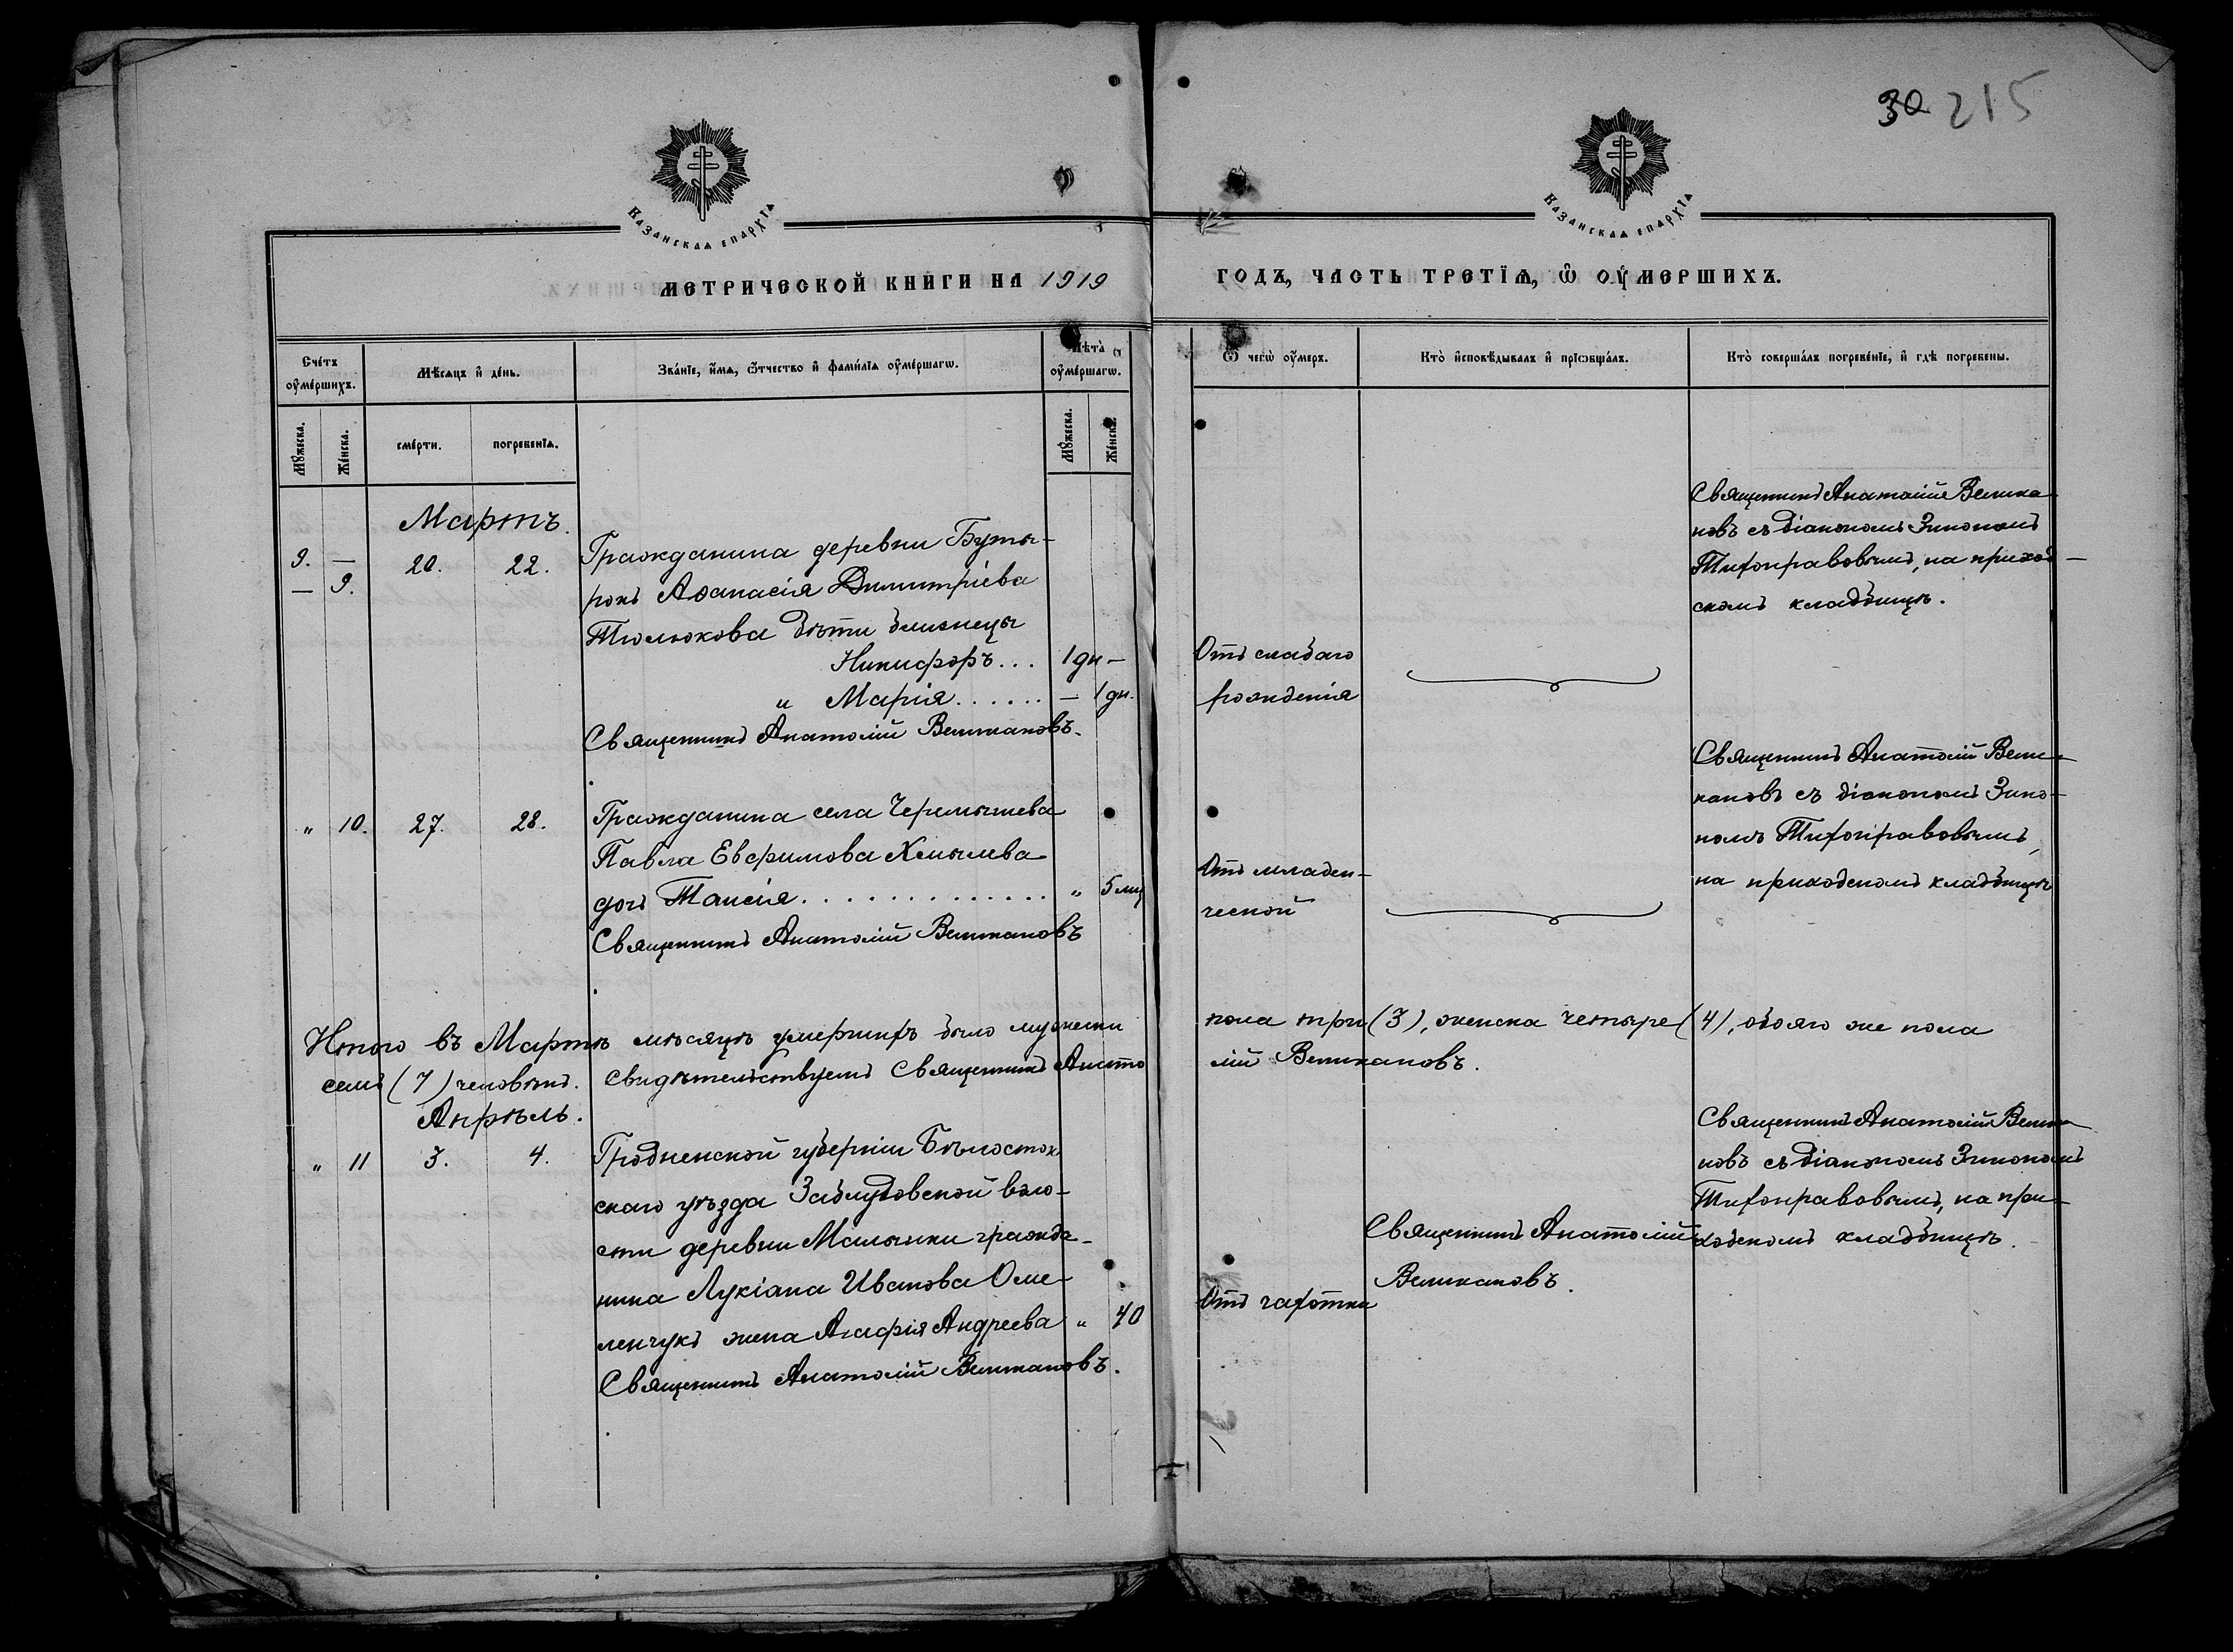 30 215
Казанская епархїѧ
Казанская епархїѧ
МЕТРИЧЕСКОЙ КНИГИ НА 1919
ГОДЪ, ЧАСТЬ ТРЕТЇѦ, Ѿ ОУМЕРШИХЪ.
Сче́тъ оу҆ме́ршихъ.
Мѣ́сѧцъ и҆ де́нь.
Зва́нїе, и҆́мѧ, ѻ҆́тчество и҆ фами́лїѧ оу҆ме́ршагѡ.
Лѣ́та оу҆ме́ршагѡ.
Ѿ чегѡ̀ оу҆́меръ.
Кто̀ и҆сповѣ́дывалъ и҆ прїѡбща́лъ.
Кто̀ соверша́лъ погребе́нїе, и҆ гдѣ̀ погребены.
Мꙋ́жеска.
Же́нска.
сме́рти.
погребенїѧ.
Мꙋ́жеска.
Же́нска.
Мартъ.
9. — 20. 22. Гражданина деревни Буты-
— 9. ронъ Аѳанасія Димитріева
Тюлюкова дѣти близнецы
Никифоръ... 1 дн —
" Марія...... — 1 дн.
Священникъ Анатолій Великановъ.
Отъ слабаго
рожденія
Священникъ Анатолій Велика-
новъ съ діакономъ Зинономъ
Тихонравовымъ, на приход-
скомъ кладбищѣ.
" 10. 27. 28. Гражданина села Черемышева
Павла Евфимова Хмылева
дочь Таисія.............. " 5 мц
Священникъ Анатолій Великановъ
Отъ младен-
ческой
Священникъ Анатолій Вели-
кановъ съ діакономъ Зино-
номъ Тихонравовымъ,
на приходскомъ кладбищѣ
Итого въ Мартѣ мѣсяцѣ умершихъ было мужески
пола три (3), женска четыре (4), обоего же пола
семь (7) человѣкъ. Свидѣтельствуемъ Священникъ Анато
лій Великановъ.
Апрѣль.
" 11 3. 4. Гродненской губерніи Бѣлосток
скаго уѣзда Заблудовской воло-
сти деревни Малынки гражда-
нина Лукіана Иванова Оме-
ленчукъ жена Агафія Андреева " 40
Священникъ Анатолій Великановъ.
Отъ чахотки
Священникъ Анатолій
Великановъ.
Священникъ Анатолій Велика
новъ съ діакономъ Зинономъ
Тихонравовымъ, на при-
ходскомъ кладбищѣ.